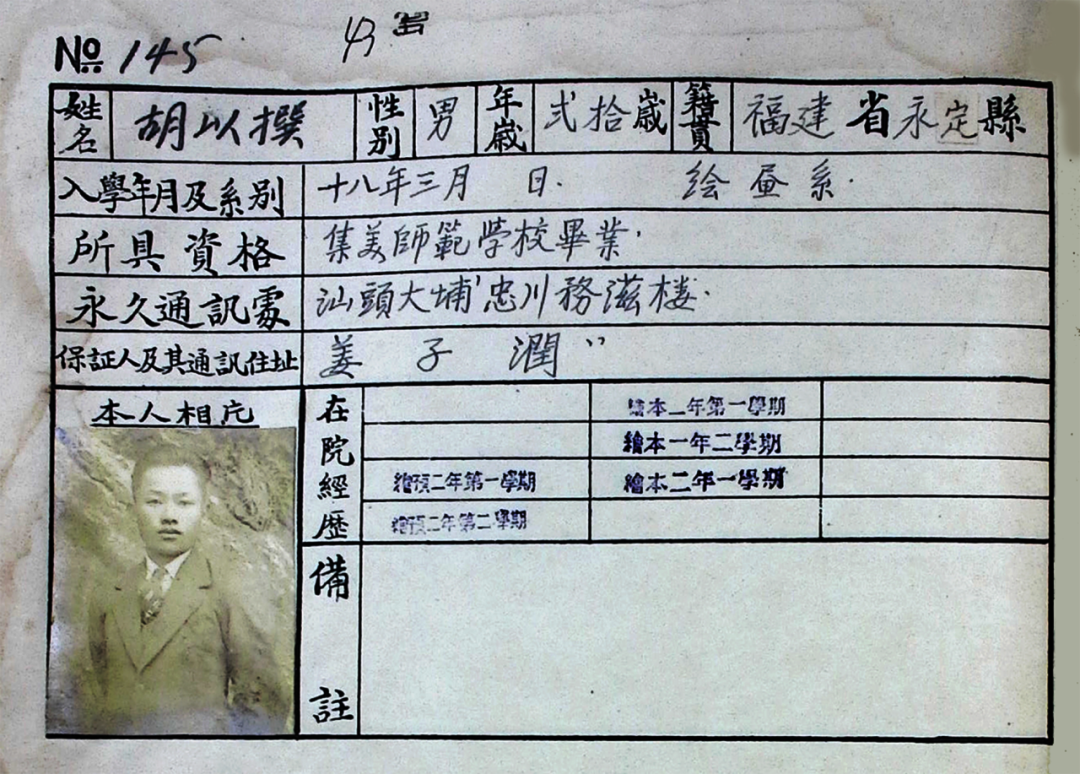 № 145
姓名 胡以撰 性別 男 年歲 弍拾歲 籍貫 福建省永定縣
入學年月及系别 十八年三月 日. 绘画系.
所具資格 集美師範學校畢業.
永久通訊處 汕頭大埔忠川務滋楼.
保証人及其通訊住址 姜子潤〃
本人相片
在院經歷
繪本一年第一學期
繪本一年二學期
繪預二年第一學期 繪本二年一學期
繪預二年第二學期
備註